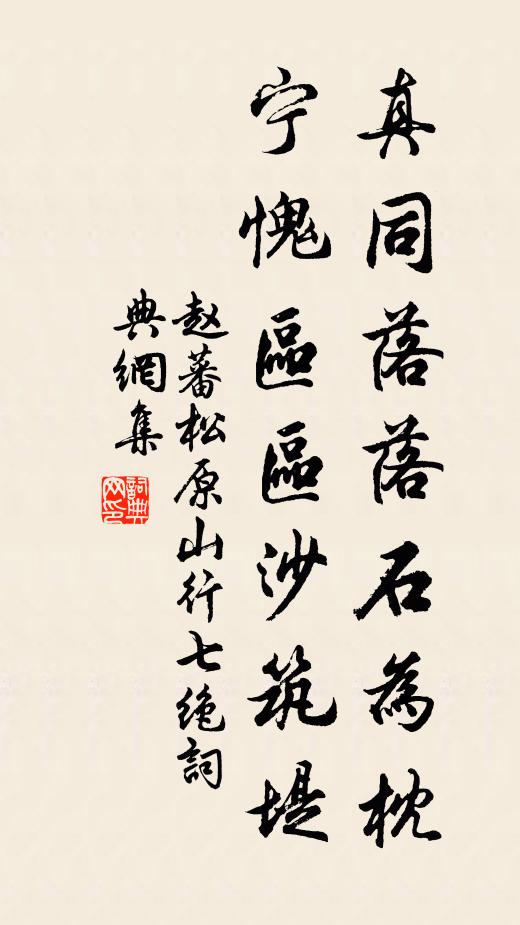 真同落落石為枕
宁愧區區沙筑堤
赵蕃松原山行七绝詞
典網集
詞典
网印